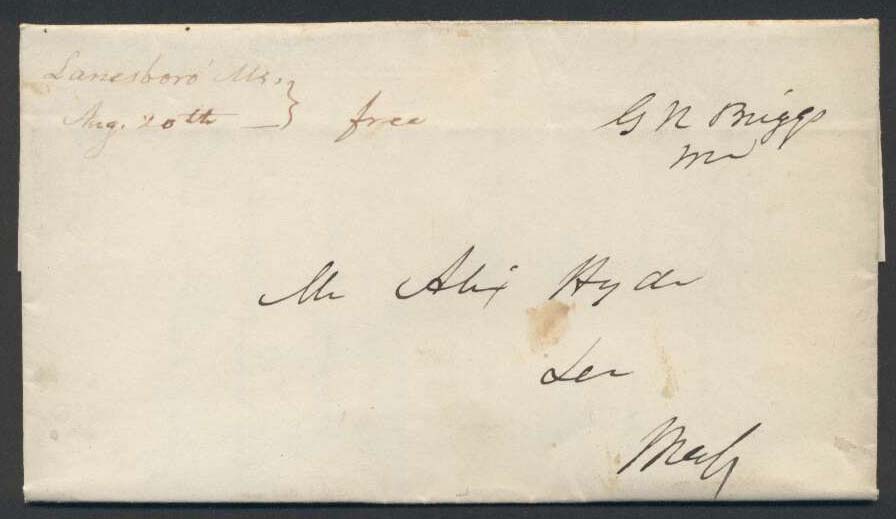 Lanesboro' Ms. }
Aug. 20th — } free
G N Briggs
M C
Mr Alex Hyde
Lee
Mass